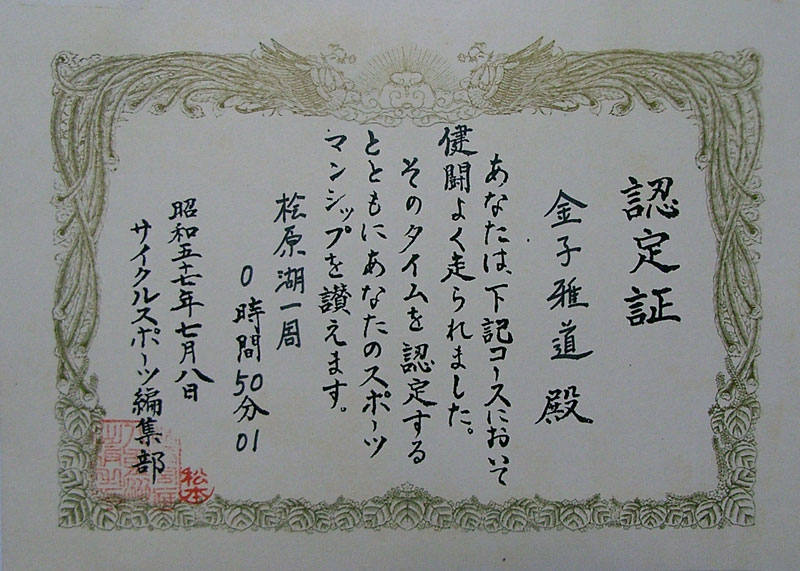 認定証
金子雅道殿
あなたは、下記コースにおいて
健闘よく走られました。
そのタイムを認定する
とともにあなたのスポーツ
マンシップを讃えます。
桧原湖一周
0時間50分01
昭和五十七年七月八日
サイクルスポーツ編集部
松本